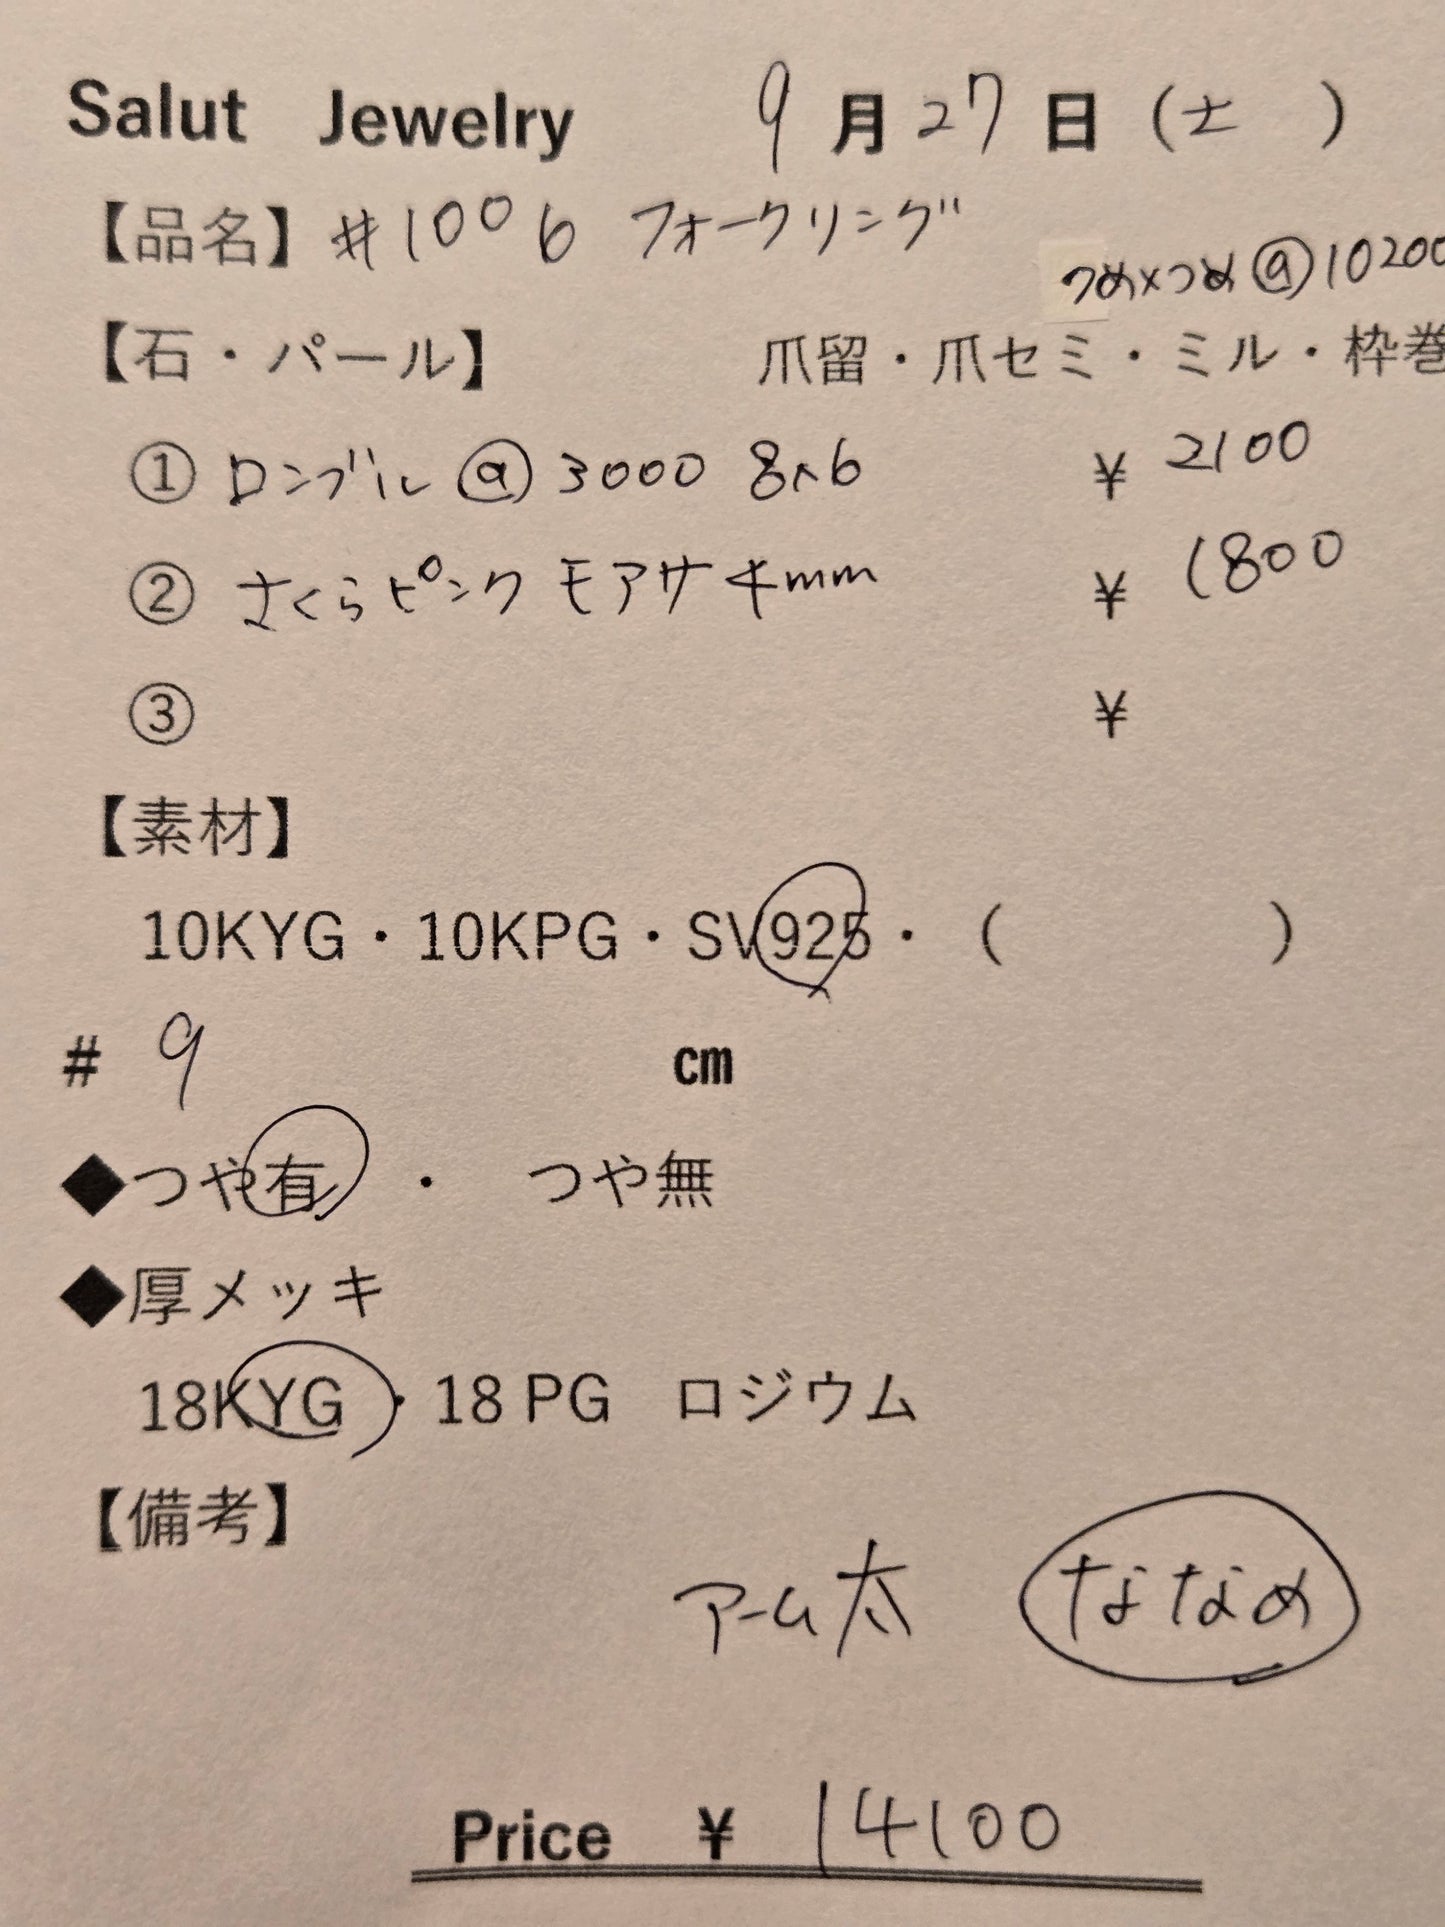 Salut Jewelry 9月27日(土 )
【品名】#1006 フォークリング
つめ×つめ@10200
【石・パール】 爪留・爪セミ・ミル・枠巻
① ロンブル@3000 8×6 ¥2100
② さくらピンク モアサ 4mm ¥1800
③ ¥
【素材】
10KYG・10KPG・SV925・( )
# 9 cm
◆つや有 ・ つや無
◆厚メッキ
18KYG・18 PG ロジウム
【備考】
アーム太 ななめ
Price ¥14100